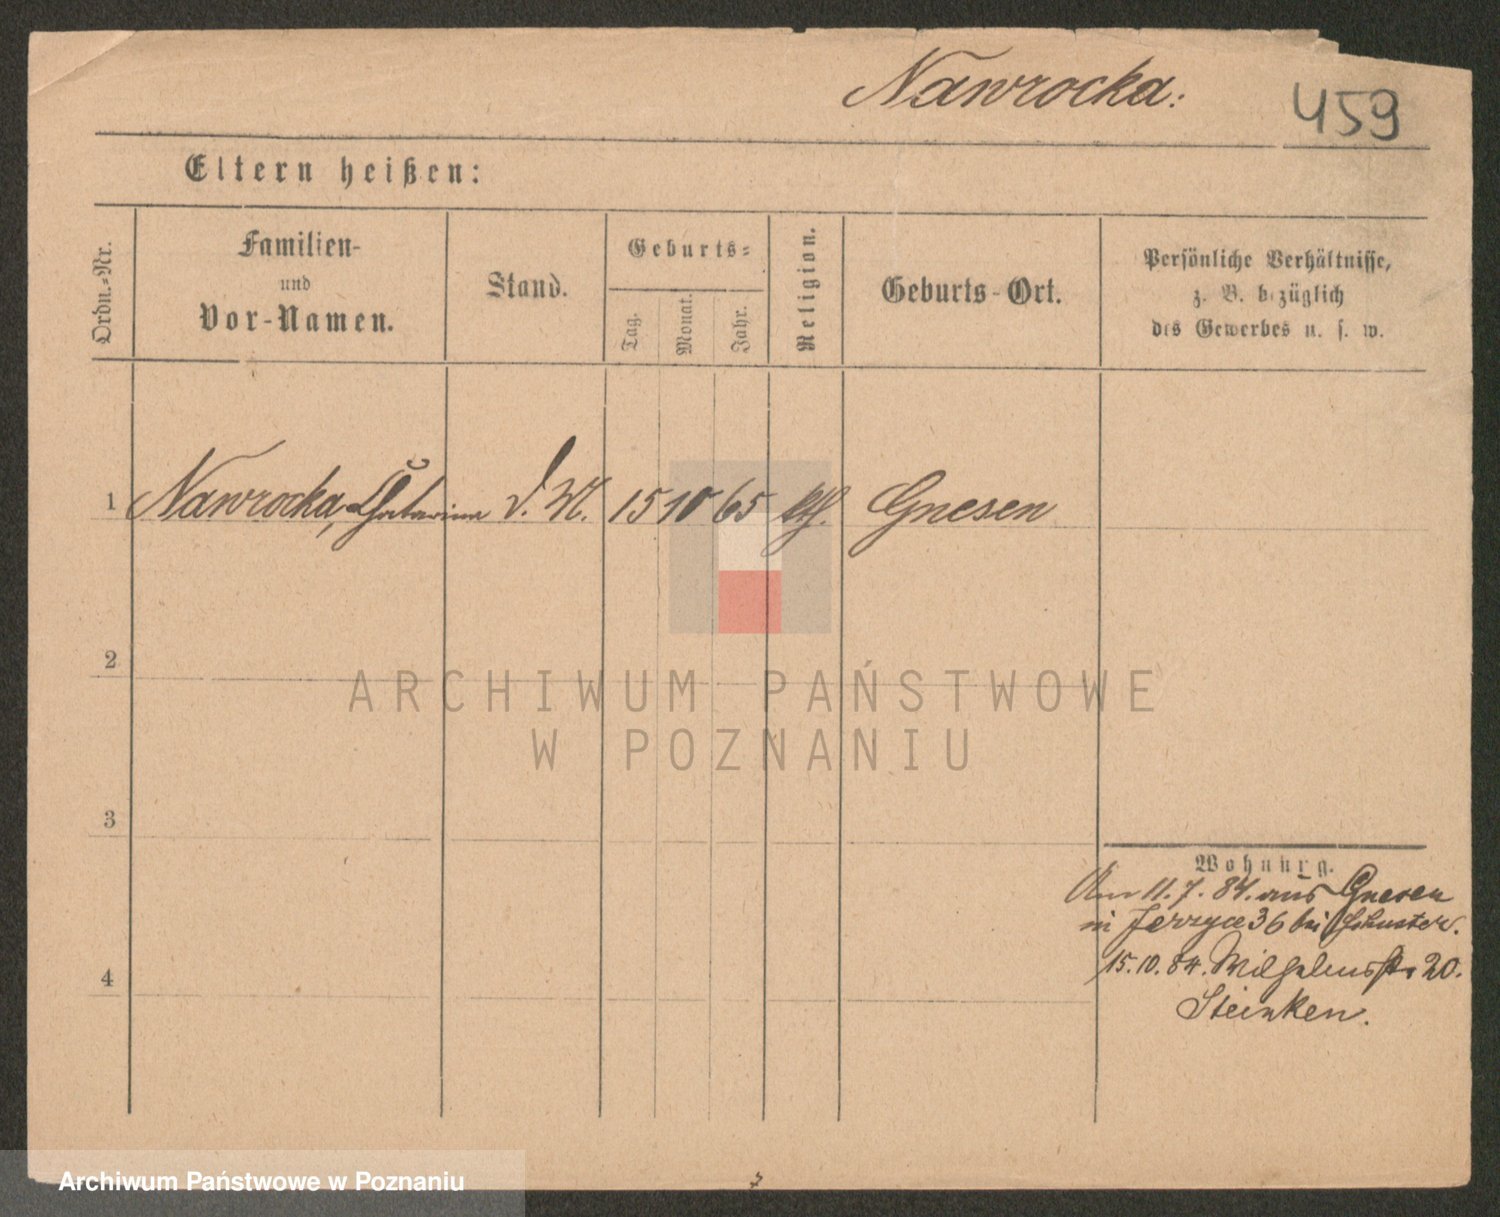 Nawrocka:
459
Eltern heißen:
Ordn.-Nr.
Familien-
und
Vor-Namen.
Stand.
Geburts-
Tag.
Monat.
Jahr.
Religion.
Geburts-Ort.
Persönliche Verhältnisse,
z. B. bezüglich
des Gewerbes u. s. w.
1 Nawrocka, Catarina d. M. 15 10 65 kth. Gnesen
2
3
4
Wohnung.
Am 11.7.84. aus Gnesen
in Jerzyce 36 bei Schuster.
15.10.84. Wilhelmsstr 20.
Steinken.
ARCHIWUM PAŃSTWOWE
W POZNANIU
Archiwum Państwowe w Poznaniu